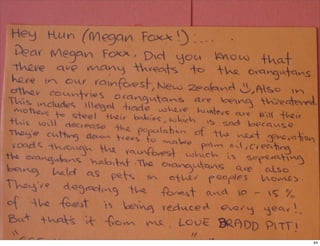 Hey Hun (Megan Foxx!) .... .
Dear Megan Foxx. Did you know that
there are many threats to the orangutans
here in our rainforest, New Zealand !!, Also in
other countries orangutans are being threatened.
This includes Illegal trade where hunters are kill their
mothers to steel their babies, which is sad because
this will decrease the population of the next generation
They're cutting down trees to make palm oil, creating
roads through the rainforest which is seperating
the orangutans habitat. The orangutans are also
being held as pets in oth peoples homes.
They're degrading the forest and 10 - 15%
of the forest is being reduced every year!.
But that's it from me. LOVE BRADD PITT!